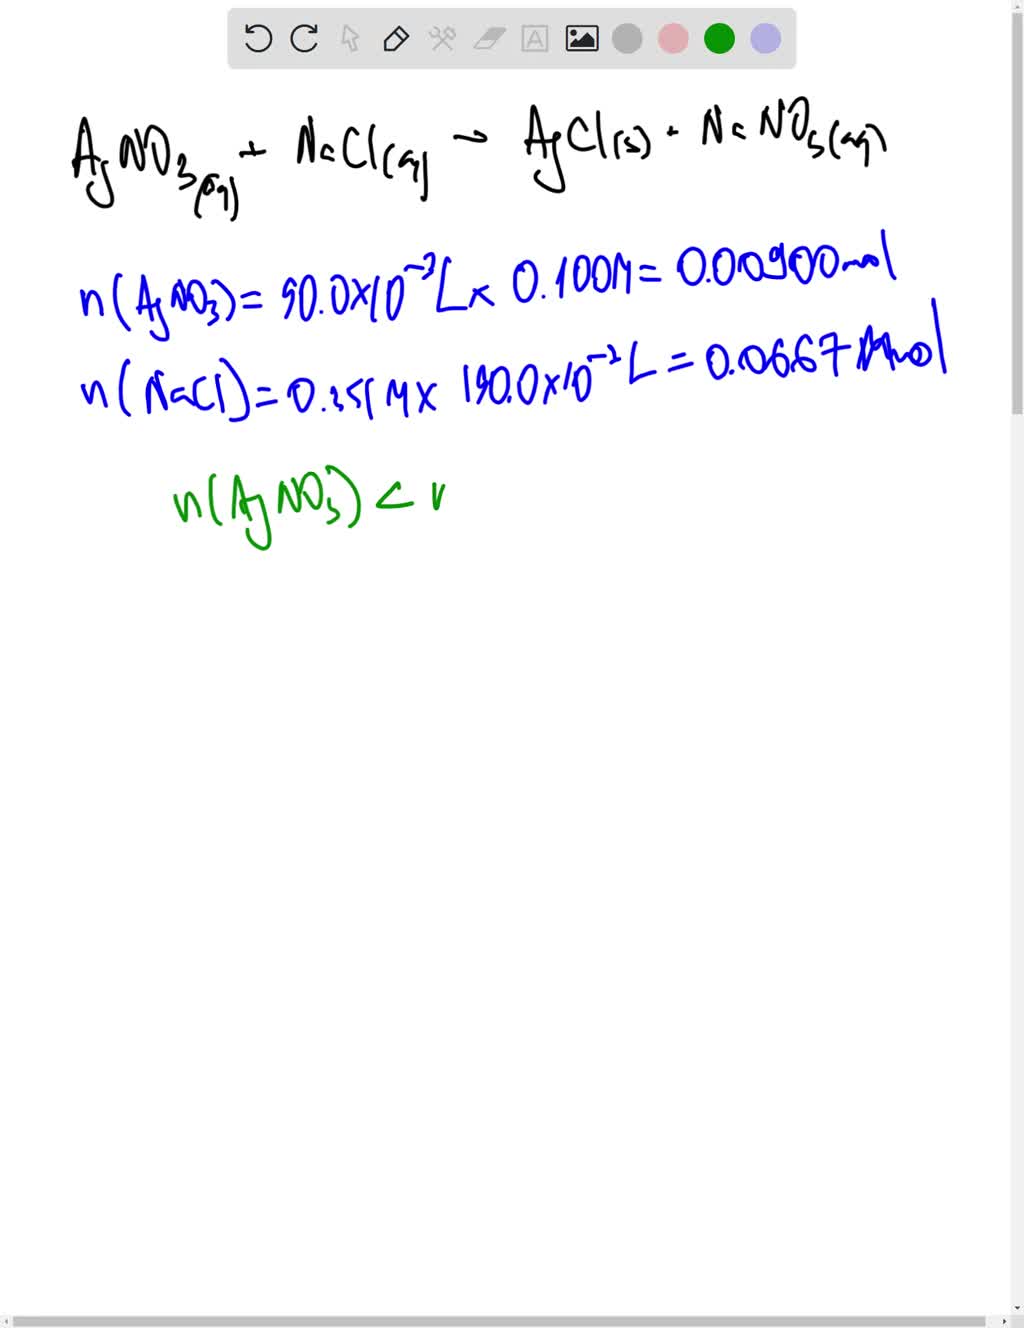 AgNO3(aq) + NaCl(aq) → AgCl(s) + NaNO3(aq)
n(AgNO3) = 90.0×10^-3 L × 0.100M = 0.00900mol
n(NaCl) = 0.351 M × 190.0×10^-3 L = 0.0667 mol
n(AgNO3) < n